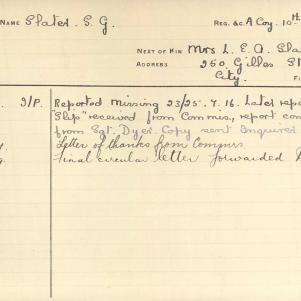 NAME Slater. S. G. REG. & C. A Coy. 10TH
NEXT OF KIN Mrs L. E. A. Sla
ADDRESS 250, Gilles St
City. F
S/P. Reported missing 23/25. 7. 16. Later repo
"Slip" received from Commrs., report con
from Sgt. Dyer. Copy sent Enquirer
Letter of thanks from Commrs.
Final circular letter forwarded